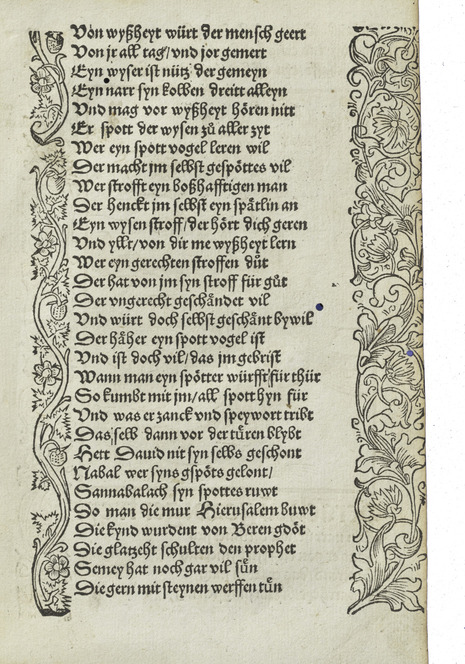 Von wyßheyt würt der mensch geert
Von jr all tag/ vnd jor gemert
Eyn wyser ist nütz der gemeyn
Eyn narr syn kolben dreitt alleyn
Vnd mag vor wyßheyt hören nitt
Er spott der wysen zů aller zyt
Wer eyn spott vogel leren wil
Der macht jm selbst gespöttes vil
Wer strofft eyn boßhafftigen man
Der henckt jm selbst eyn spätlin an
Eyn wysen stroff/ der hört dich geren
Vnd yllt/ von dir me wyßheyt lern
Wer eyn gerechten stroffen důt
Der hat von jm syn stroff für gůt
Der vngerecht geschändet vil
Vnd würt doch selbst geschänt bywil
Der häher eyn spott vogel ist
Vnd ist doch vil/ das jm gebrist
Wann man eyn spötter würfft für thür
So kumbt mit jm/ all spott hyn für
Vnd was er zanck vnd speywort tribt
Das selb dann vor der türen blybt
Hett Dauid nit syn selbs geschont
Nabal wer syns gspöts gelont/
Sannabalach syn spottes ruwt
Do man die mur Hierusalem buwt
Die kynd wurdent von Beren gdöt
Die glatzeht schulten den prophet
Semey hat noch gar vil sün
Die gern mit steynen werffen tün